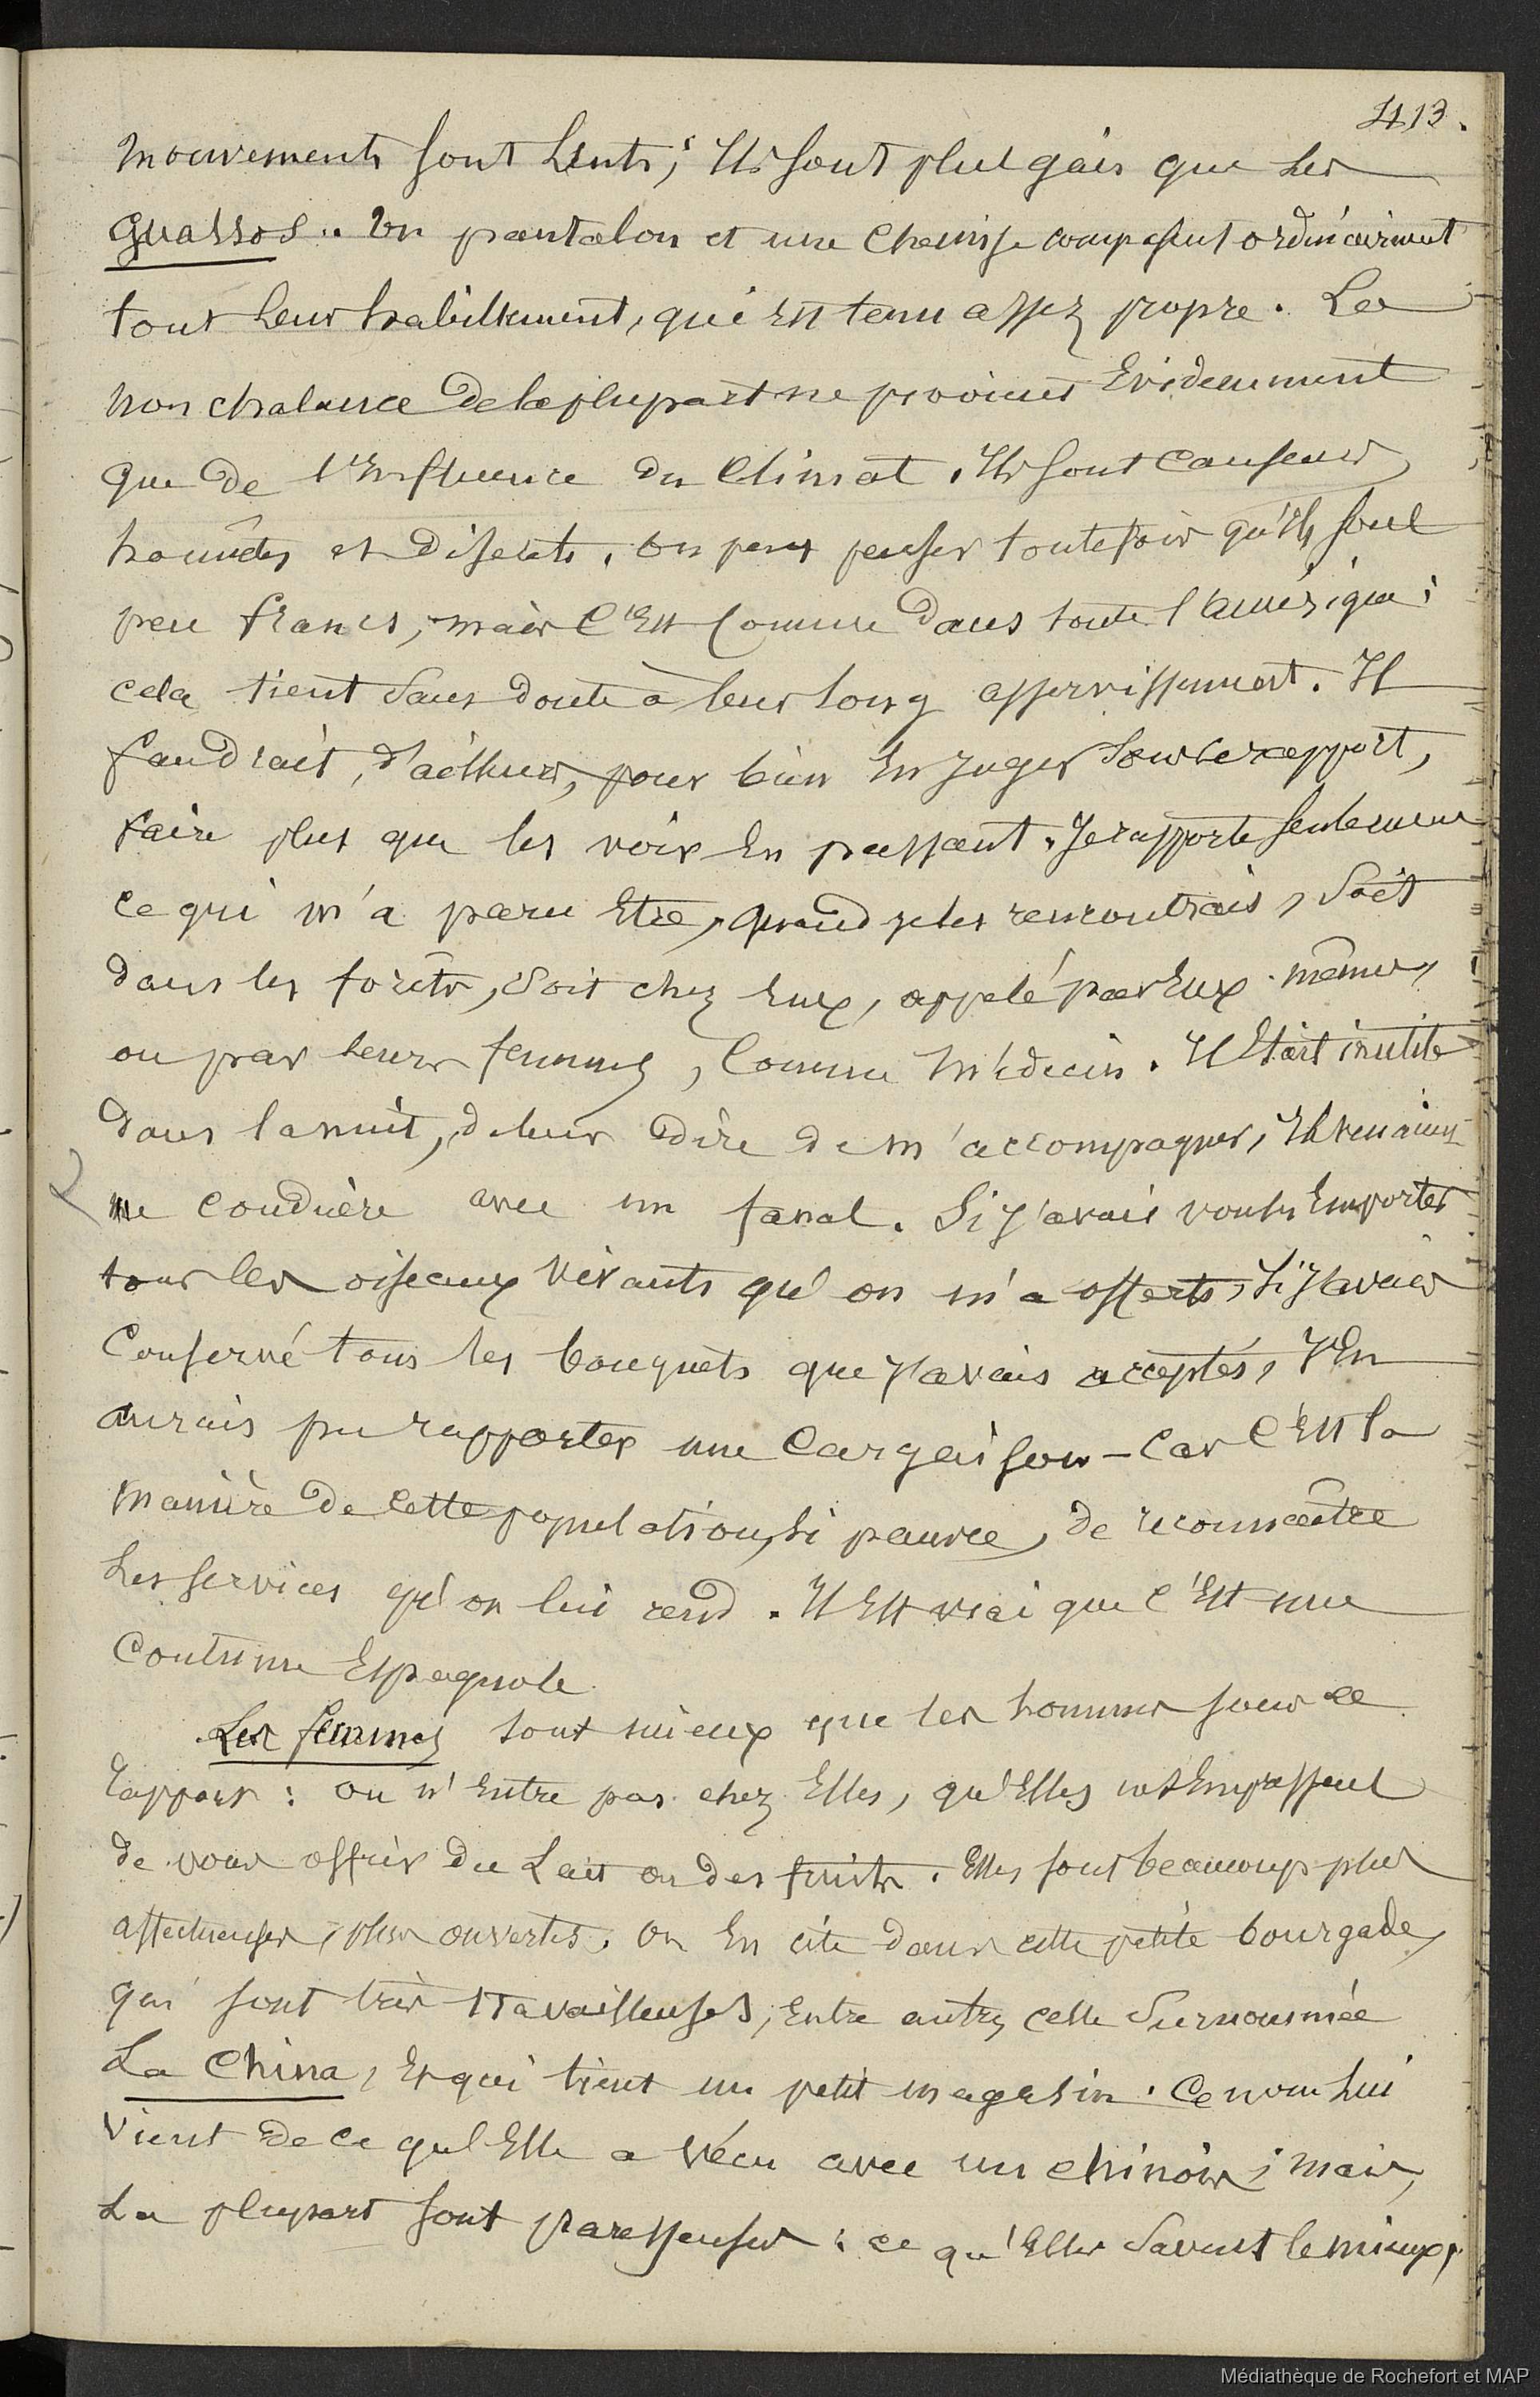 413.
mouvements sont lents; Ils sont plus gais que les
guassos.. Un pantalon et une chemise composent ordinairement
tout leur habillement, qui est tenu assez propre. La
nonchalance de la plupart ne provient Evidemment
que de l'Influence du Climat. Ils sont causeurs,
honnêtes et discrets. On peut penser toutefois qu'ils sont
peu francs, mais c'Est comme dans toute l'amérique;
cela tient sans doute à leur long asservissement. Il
faudrait, d'ailleurs, pour bien En juger sous ce rapport,
faire plus que les voir En passant. Je rapporte seulement
ce qui m'a paru Etre, quand je les rencontrais, soit
dans les forêts, soit chez Eux, appelé par Eux-mêmes,
ou par leurs femmes, comme Médecin. Il Etait inutile
dans la nuit, de leur dire de m'accompagner, Ils venaient
me conduire avec un fanal. Si j'avais voulu Emporter
tous les oiseaux vivants qu'on m'a offerts, si j'avais
Conservé tous les bouquets que j'avais acceptés, j'En
aurais pu rapporter une Cargaison – Car c'Est la
manière de cette population, si pauvre, de reconnaître
les services qu'on lui rend. Il Est vrai que c'Est une
Coutume Espagnole.
Les femmes sont mieux que les hommes sous ce
rapport: on n'Entre pas chez Elles, qu'Elles ne s'Empressent
de vous offrir du Lait ou des fruits. Elles sont beaucoup plus
affectueuses, plus ouvertes. On En cite dans cette petite bourgade,
qui sont très travailleuses, Entre autres celle Surnommée
La China, Et qui tient un petit magasin. Ce nom lui
vient de ce qu'Elle a vécu avec un chinois; mais,
La plupart sont paresseuses: ce qu'Elles savent le mieux,
Médiathèque de Rochefort et MAP